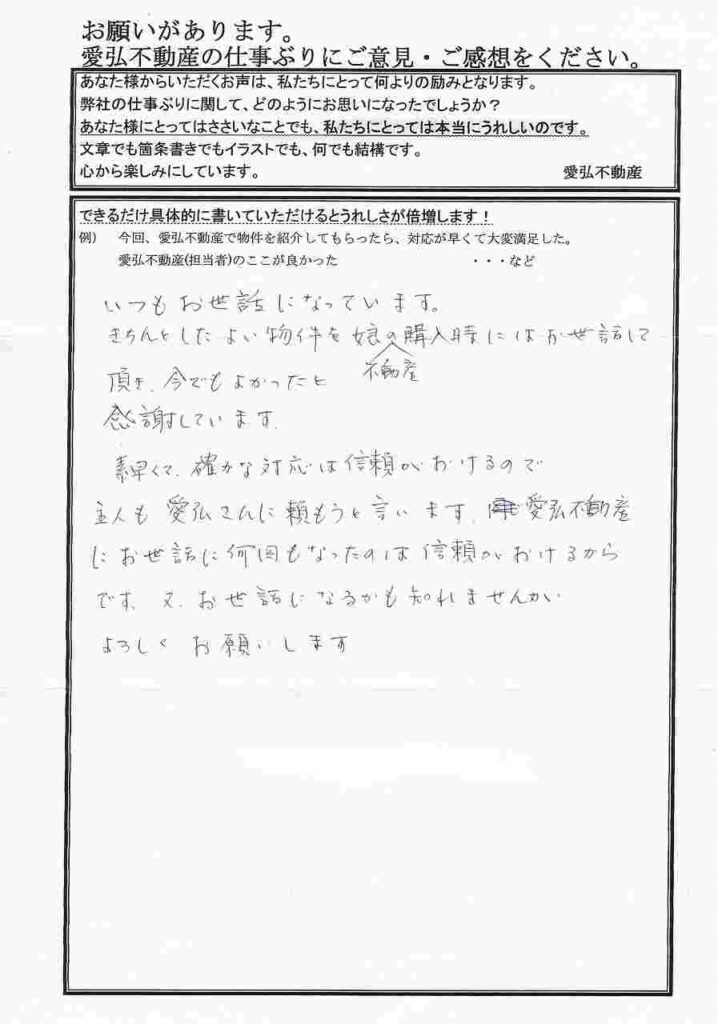 お願いがあります。
愛弘不動産の仕事ぶりにご意見・ご感想をください。
あなた様からいただくお声は、私たちにとって何よりの励みとなります。
弊社の仕事ぶりに関して、どのようにお思いになったでしょうか？
あなた様にとってはささいなことでも、私たちにとっては本当にうれしいのです。
文章でも箇条書きでもイラストでも、何でも結構です。
心から楽しみにしています。 愛弘不動産
できるだけ具体的に書いていただけるとうれしさが倍増します！
例） 今回、愛弘不動産で物件を紹介してもらったら、対応が早くて大変満足した。
愛弘不動産(担当者)のここが良かった ・・・など
いつもお世話になっています。
きちんとしたよい物件を娘の不動産購入時にはお世話して
頂き、今でもよかったと
感謝しています。
素早くて、確かな対応は信頼がおけるので
主人も愛弘さんに頼もうと言います。愛弘不動産
にお世話に何回もなったのは信頼がおけるから
です。又、お世話になるかも知れませんが
よろしくお願いします